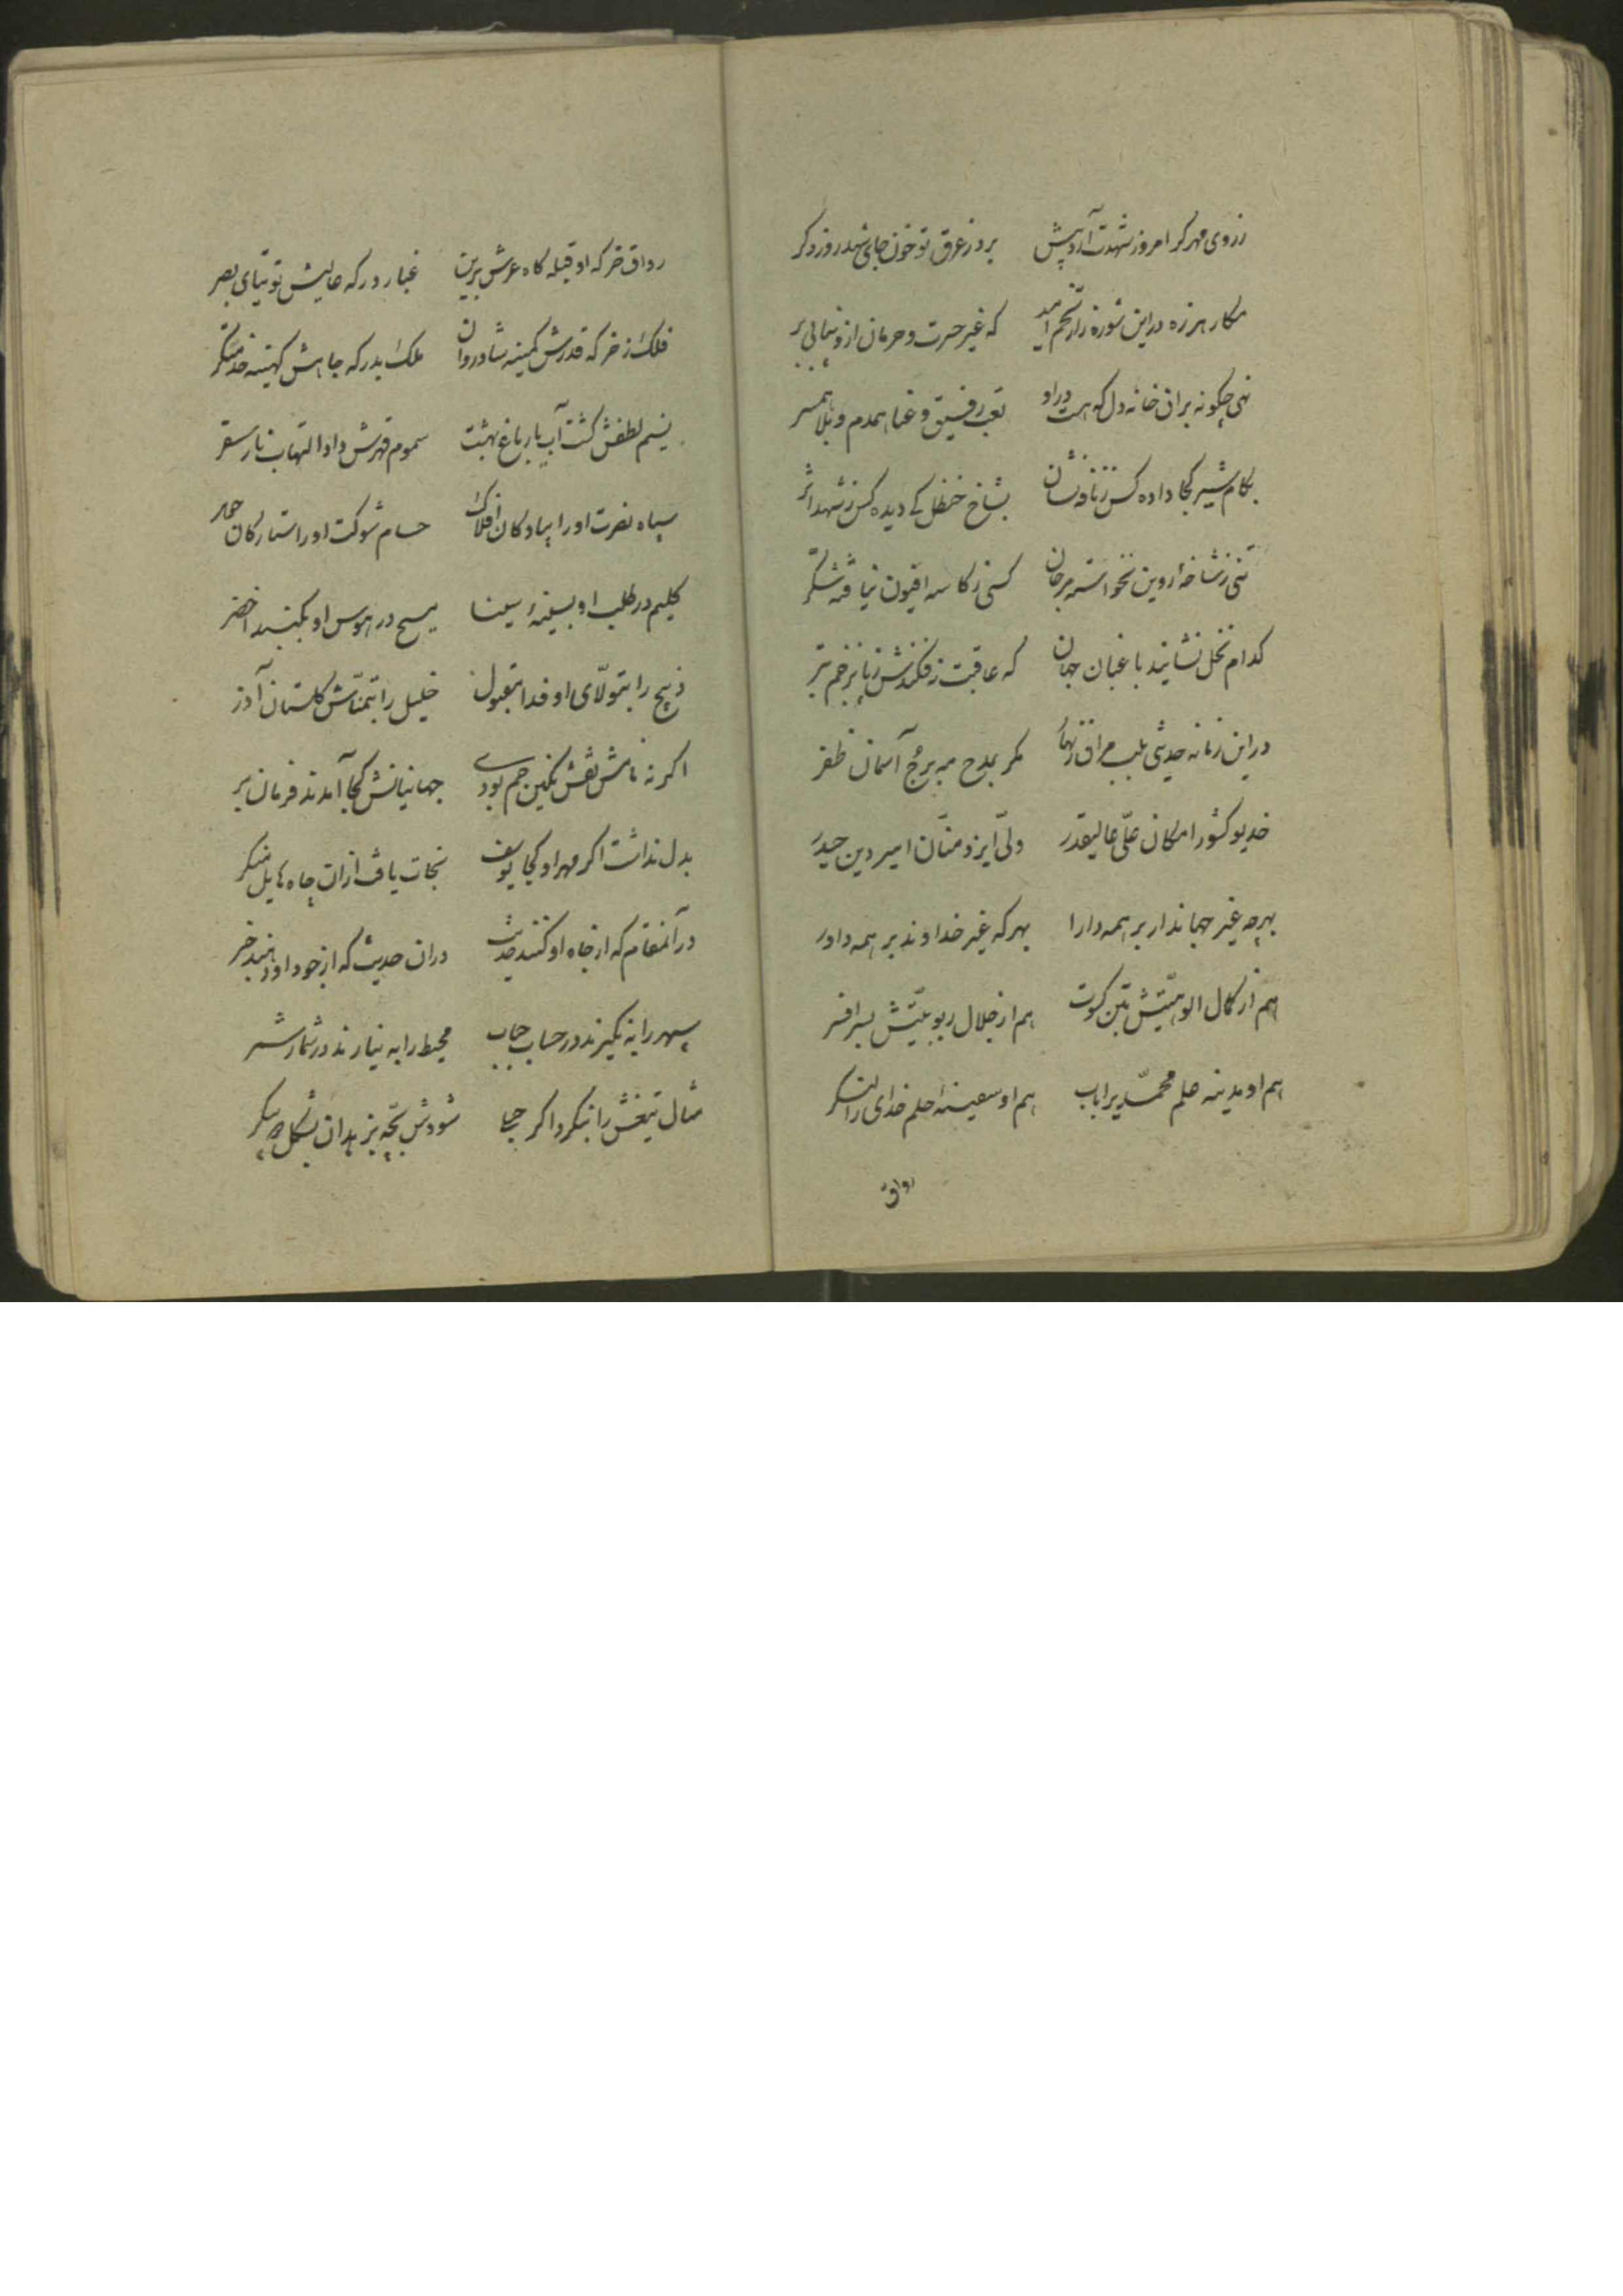 ز روی مهر کر امروز شهدت آرد پیش برد ز عرق تو خون جای شهد روز دکر
مکار هرزه در این شوره زار تخم امید که غیر حسرت و حرمان ازو نیابی بر
نهی چکونه بران خانه دل که هست در او تعب رفیق و عنا همدم و بلا همسر
بکام شیر کجا داده کس ز نافه نشان بشاخ حنظل کی دیده کس ز شهد اثر
تنی ز شاخهٔ روین نخواسته مرجان کسی ز کاسه افیون نیافته شکر
کدام نخل نشانید باغبان جهان که عاقبت نفکندش ز پا بزخم تبر
در این زمانه حدیثی بلب مران زنهار مکر بمدح مه برج آسمان ظفر
خدیو کشور امکان علّی عالیقدر ولّی ایزد منّان امیر دین حیدر
بهرچه غیر جهاندار بر همه دارا بهرکه غیر خداوند بر همه داور
هم از کمال الوهیّتش بتن کسوت هم از جلال ربوبیّتش بسر افسر
هم او مدینه علم محمّدیرا باب هم او سفینهٔ حلم خدای را لنکر
رواق
رواق خرکه او قبله کاه عرش برین غبار درکه عالیش توتیای بصر
فلک ز خرکه قدرش کمینه شادروان ملک بدرکه جاهش کهینه خدمتکر
نسیم لطفش کشت آبیار باغ بهشت سموم قهرش داد التهاب نار سقر
سپاه نصرت او را پیادکان افلاک حسام شوکت او را ستارکان جوهر
کلیم در طلب او بسینهٔ سینا مسیح در هوس او بکنبد اخضر
ذبیح را بتولّای او فدا مقبول خلیل را بتمنّاش کلستان آذر
اکر نه نامش نقش نکین جم بودی جهانیانش کجا آمدند فرمان بر
بدل نداشت اکر مهر او کجا یوسف نجات یافت ازان چاه هایل منکر
در آنمقام که از جاه او کنند حدیث دران حدیث که از جود او دهند خبر
سپهر را به نکیرند در حساب حباب محیط را به نیارند در شمار شمر
مثال تیغش را بنکرد اکر حبلا شودش بچّه بزهدان بشکل دو پیکر